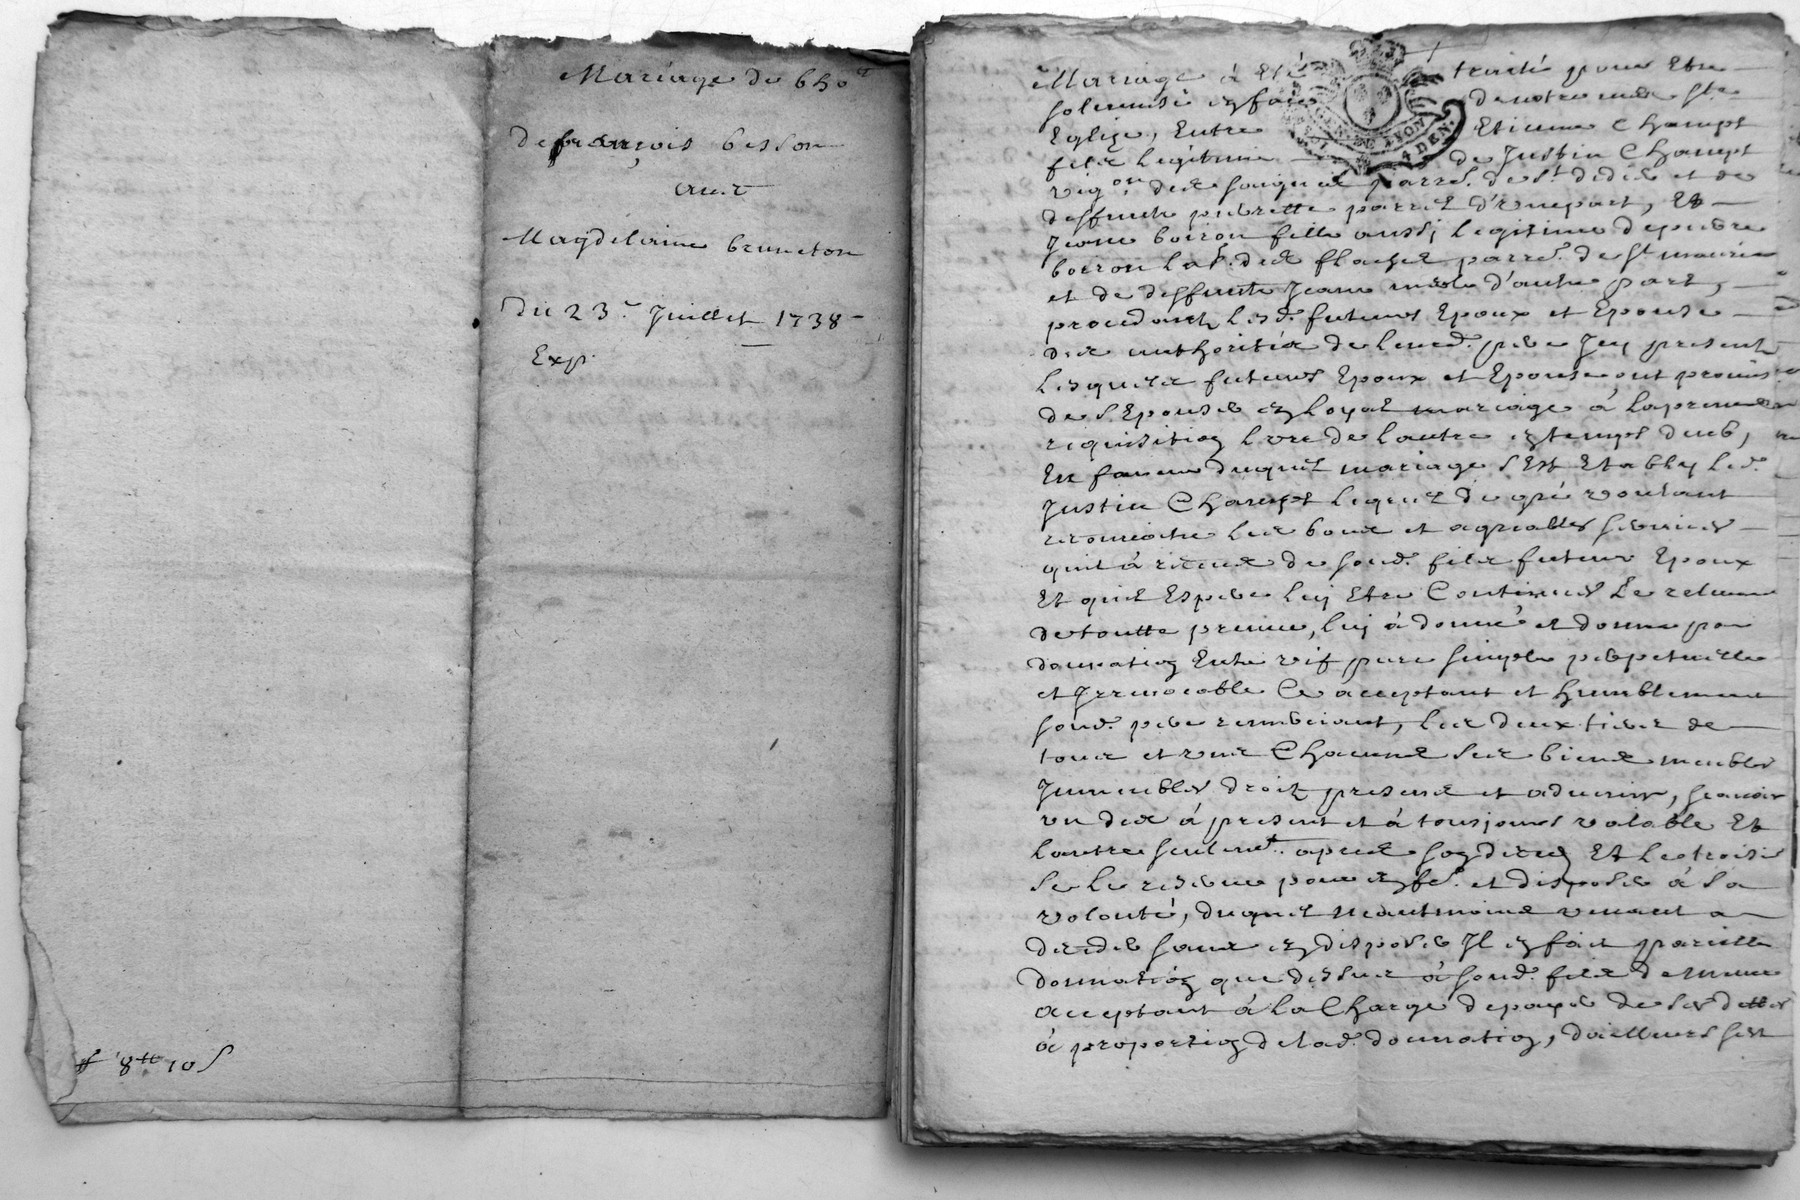 Mariage de
de françois besson
avec
Magdelaine bruneton
Du 23.e Juillet 1738
Exp.
8tt 10 s
Mariage à Eté traité pour Etre
solemnisé en face de notre mere ste
Eglize, Entre Etienne Champt
fils legitime de Justin Champt
vig.on de parr.e de st didier et de
deffunte pierrette d'Unepart, Et
Jeane boiron fille aussy legitime depierre
boiron lab.r des flaches parr.e de st maurice
et de deffunte Jeane d'autre part,
procedants lesd. futurs Epoux et Epouse
des authorités de leursd. pere Icy presents
lesquels futurs Epoux et Epouse ont promis
de s'Epouser en loyal mariage à lapremiere
requisition l'un de l'autre en temps deub,
En faveur duquel mariage s'Est Etably led.
Justin Champt lequel de gré voulant
reconnoitre les bons et agreables services
quil à receus de sond. fils futur Epoux
Et quil Espere luy Etre Continués Le relevant
detoutte preuve, luy à donné et donne par
donnation Entre vif pure simple perpetuelle
et Irrevocable Ce acceptant et humblement
sond. pere remerciant, les deux tiers de
tous et uns Chacuns ses biens meubles
Immeubles droits presens et advenir, scavoir
un des à present et à tousjours valable Et
lautre seulem.t apres son deces Et le troisie
se le reserve pour en f.e et disposer à sa
volonté, duquel neautmoins venant a
deceder sans en disposer Il en fait pareille
donnation que dessus à sond. fils de meme
acceptant à la Charge depayer de ses dettes
à proportion delad. donnation, dailleurs sest